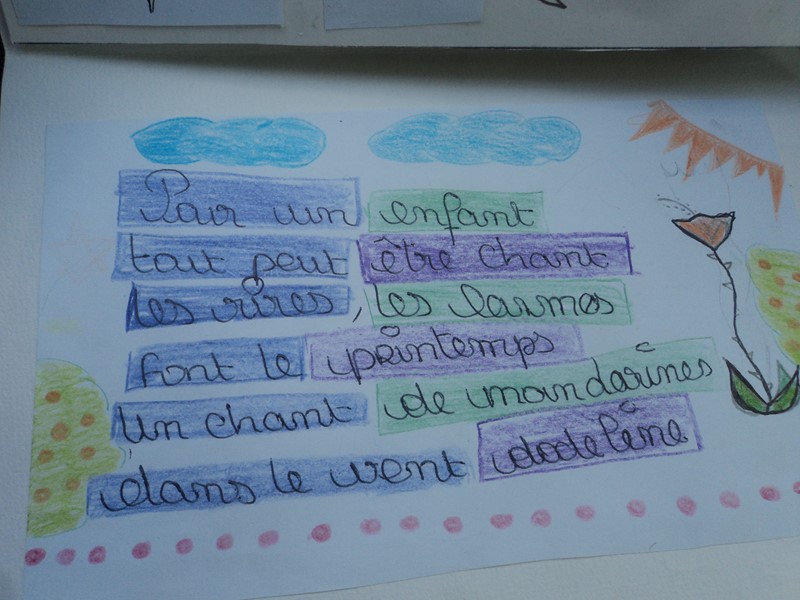 Pour un enfant
tout peut être chant
les rires, les larmes
font le printemps
Un chant de mandarines
dans le vent dodeline